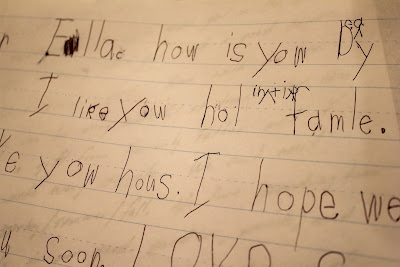 r Ella. how is yow Day
I like yow hol famle.
e yow hous. I hope we
u soon